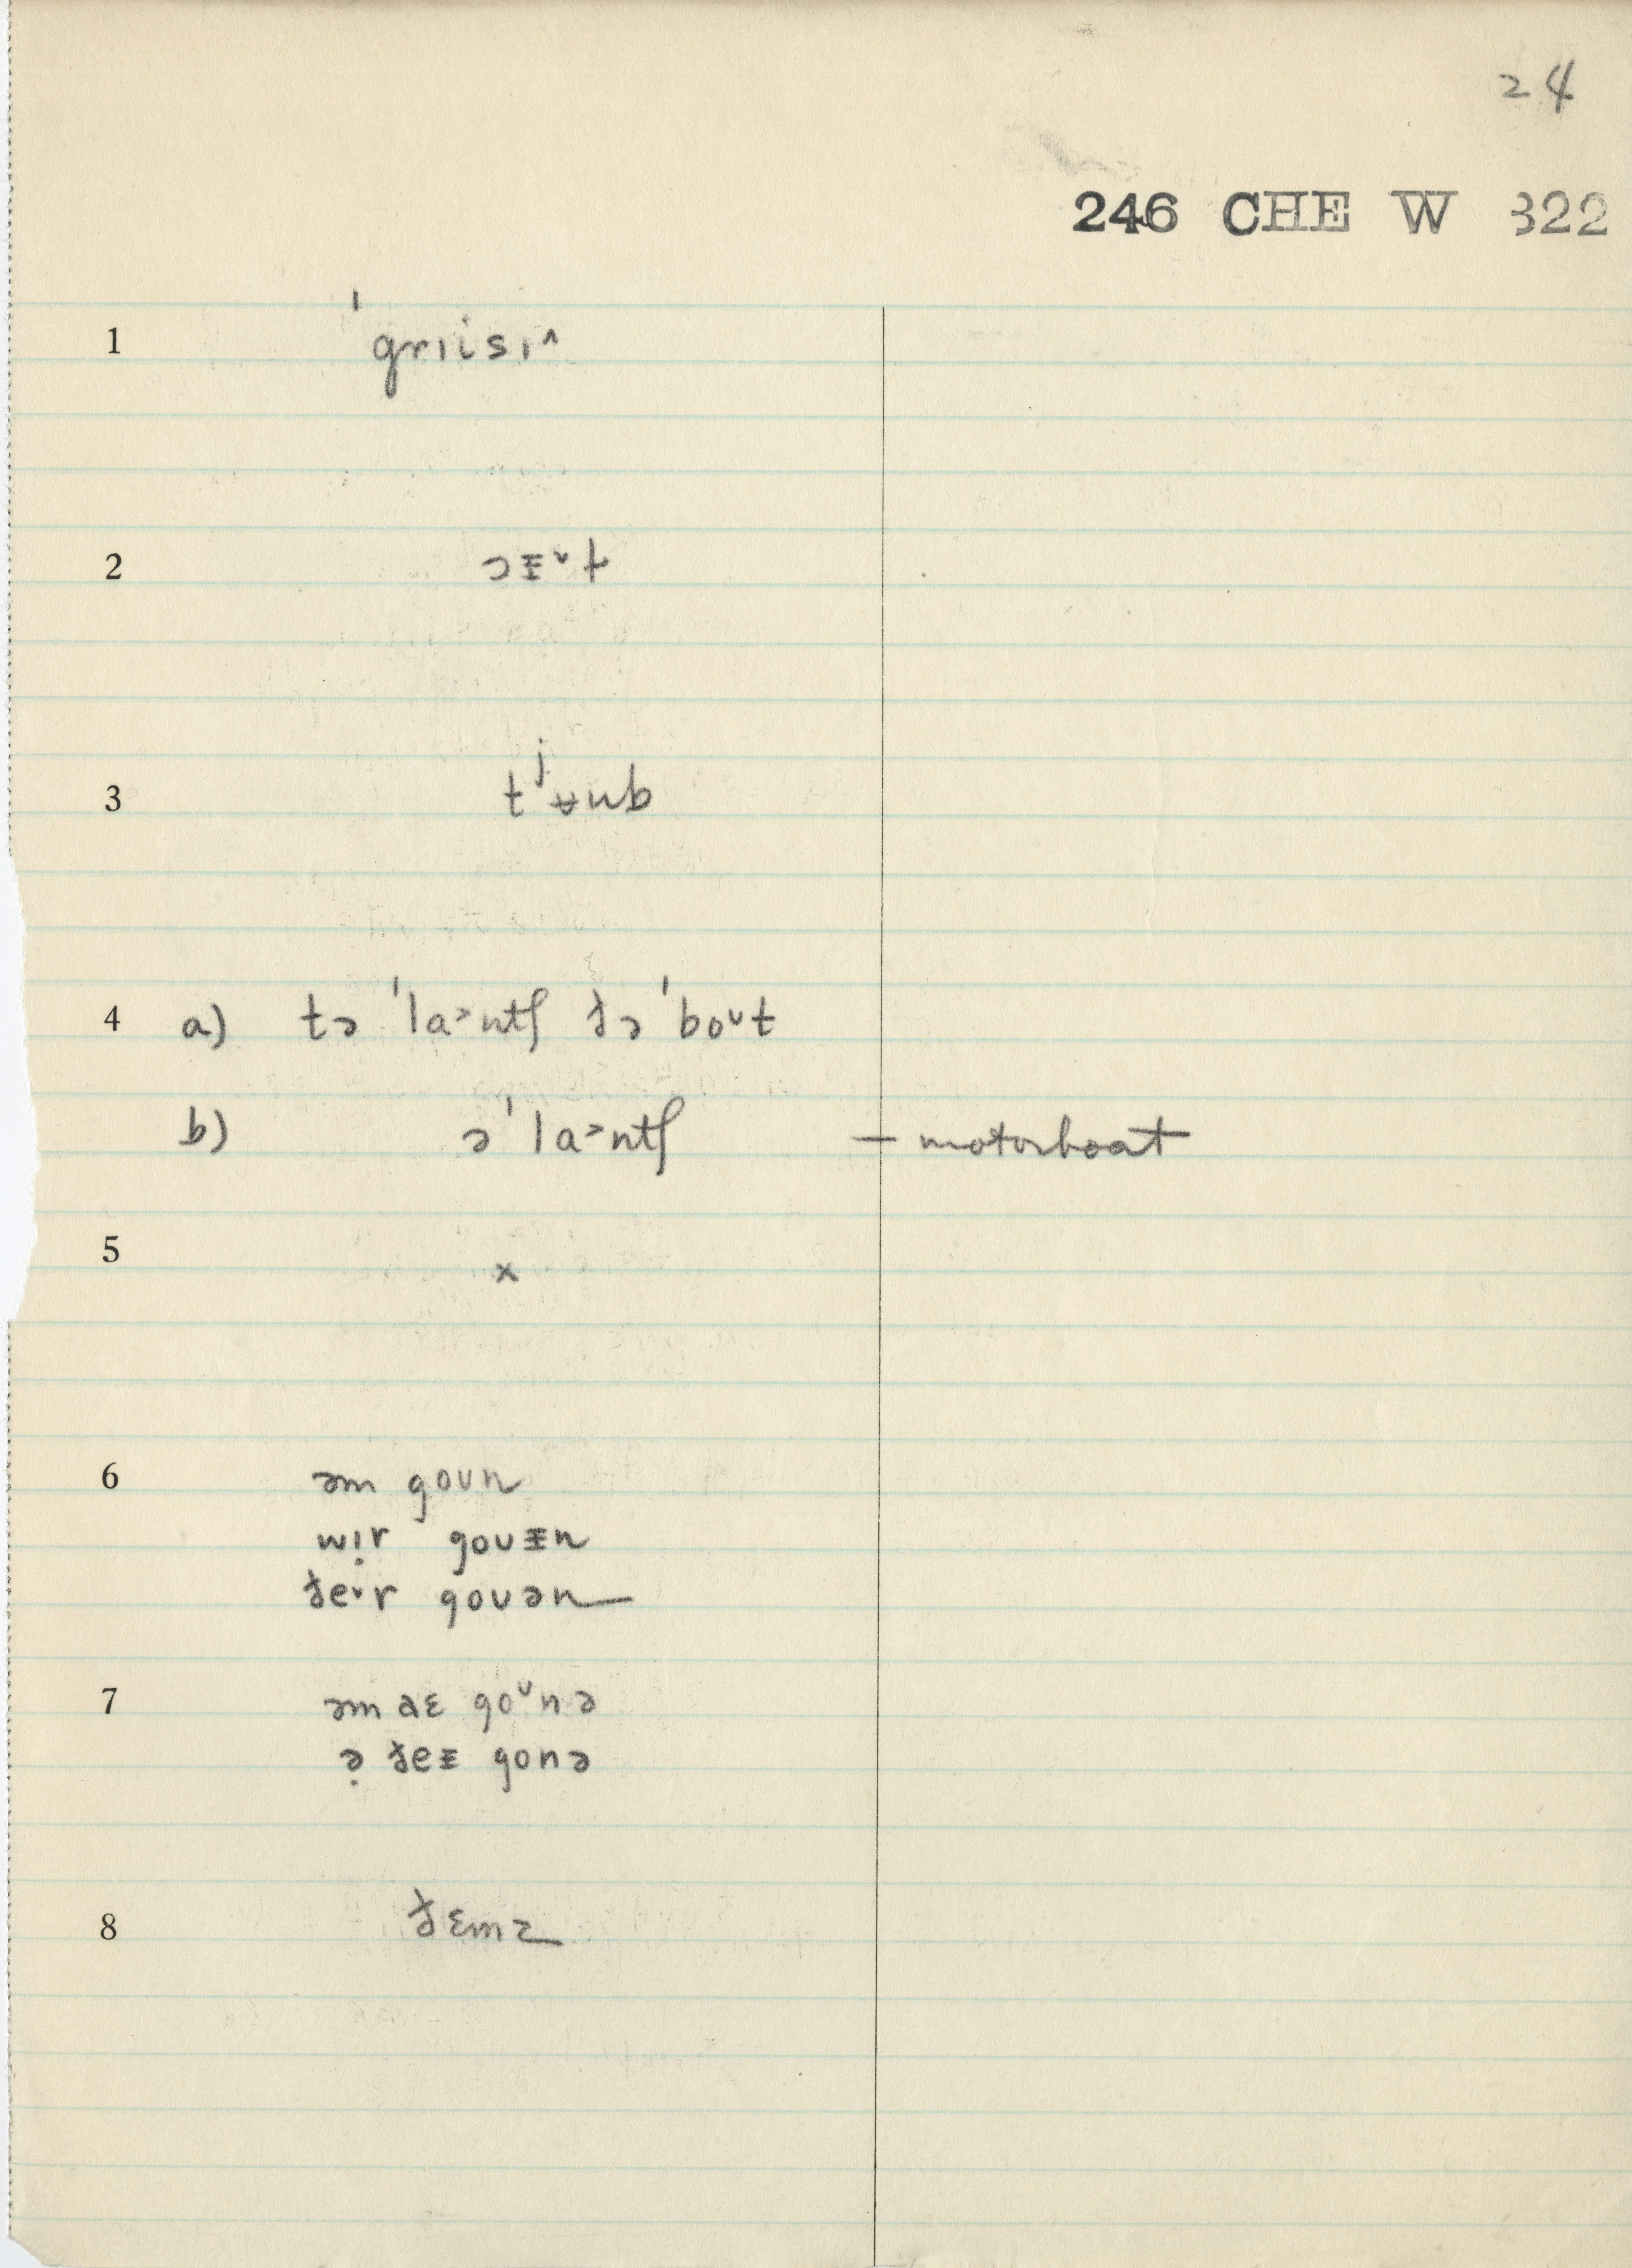 24
246 CHE W 322
1 ˈgrɪisɪ^
2 ɔᵻ˅ɫ
3 tʲʉub
4 a) tə ˈla˃ntʃ ðə ˈboᴜt
b) ə ˈla˃ntʃ — motorboat
5 x
6 əm goᴜn
wɪ̣r goᴜᵻn
ðe˅r goᴜən
7 əm aɛ goᶸnə
ə̣ ðeᵻ gonə
8 ðɛmz